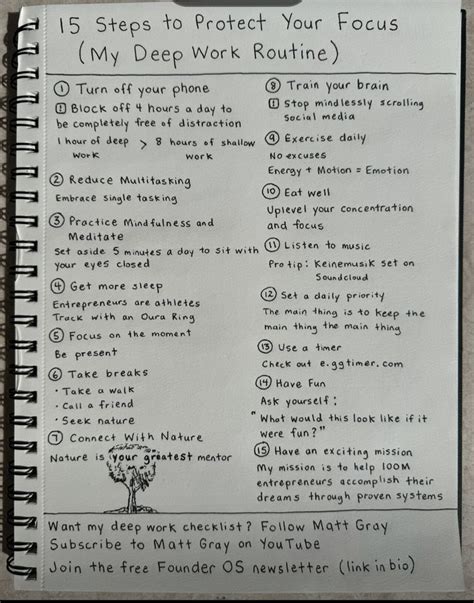 15 Steps to Protect Your Focus
(My Deep Work Routine)
① Turn off your phone
Block off 4 hours a day to
be completely free of distraction
1 hour of deep > 8 hours of shallow
work work
② Reduce Multitasking
Embrace single tasking
③ Practice Mindfulness and
Meditate
Set aside 5 minutes a day to sit with
your eyes closed
④ Get more sleep
Entrepreneurs are athletes
Track with an Oura Ring
⑤ Focus on the moment
Be present
⑥ Take breaks
• Take a walk
• Call a friend
• Seek nature
⑦ Connect With Nature
Nature is your greatest mentor
⑧ Train your brain
Stop mindlessly scrolling
social media
⑨ Exercise daily
No excuses
Energy + Motion = Emotion
⑩ Eat well
Uplevel your concentration
and focus
⑪ Listen to music
Pro tip: Keinemusik set on
Soundcloud
⑫ Set a daily priority
The main thing is to keep the
main thing the main thing
⑬ Use a timer
Check out e.ggtimer.com
⑭ Have Fun
Ask yourself:
"What would this look like if it
were fun?"
⑮ Have an exciting mission
My mission is to help 100M
entrepreneurs accomplish their
dreams through proven systems
Want my deep work checklist? Follow Matt Gray
Subscribe to Matt Gray on YouTube
Join the free Founder OS newsletter (link in bio)